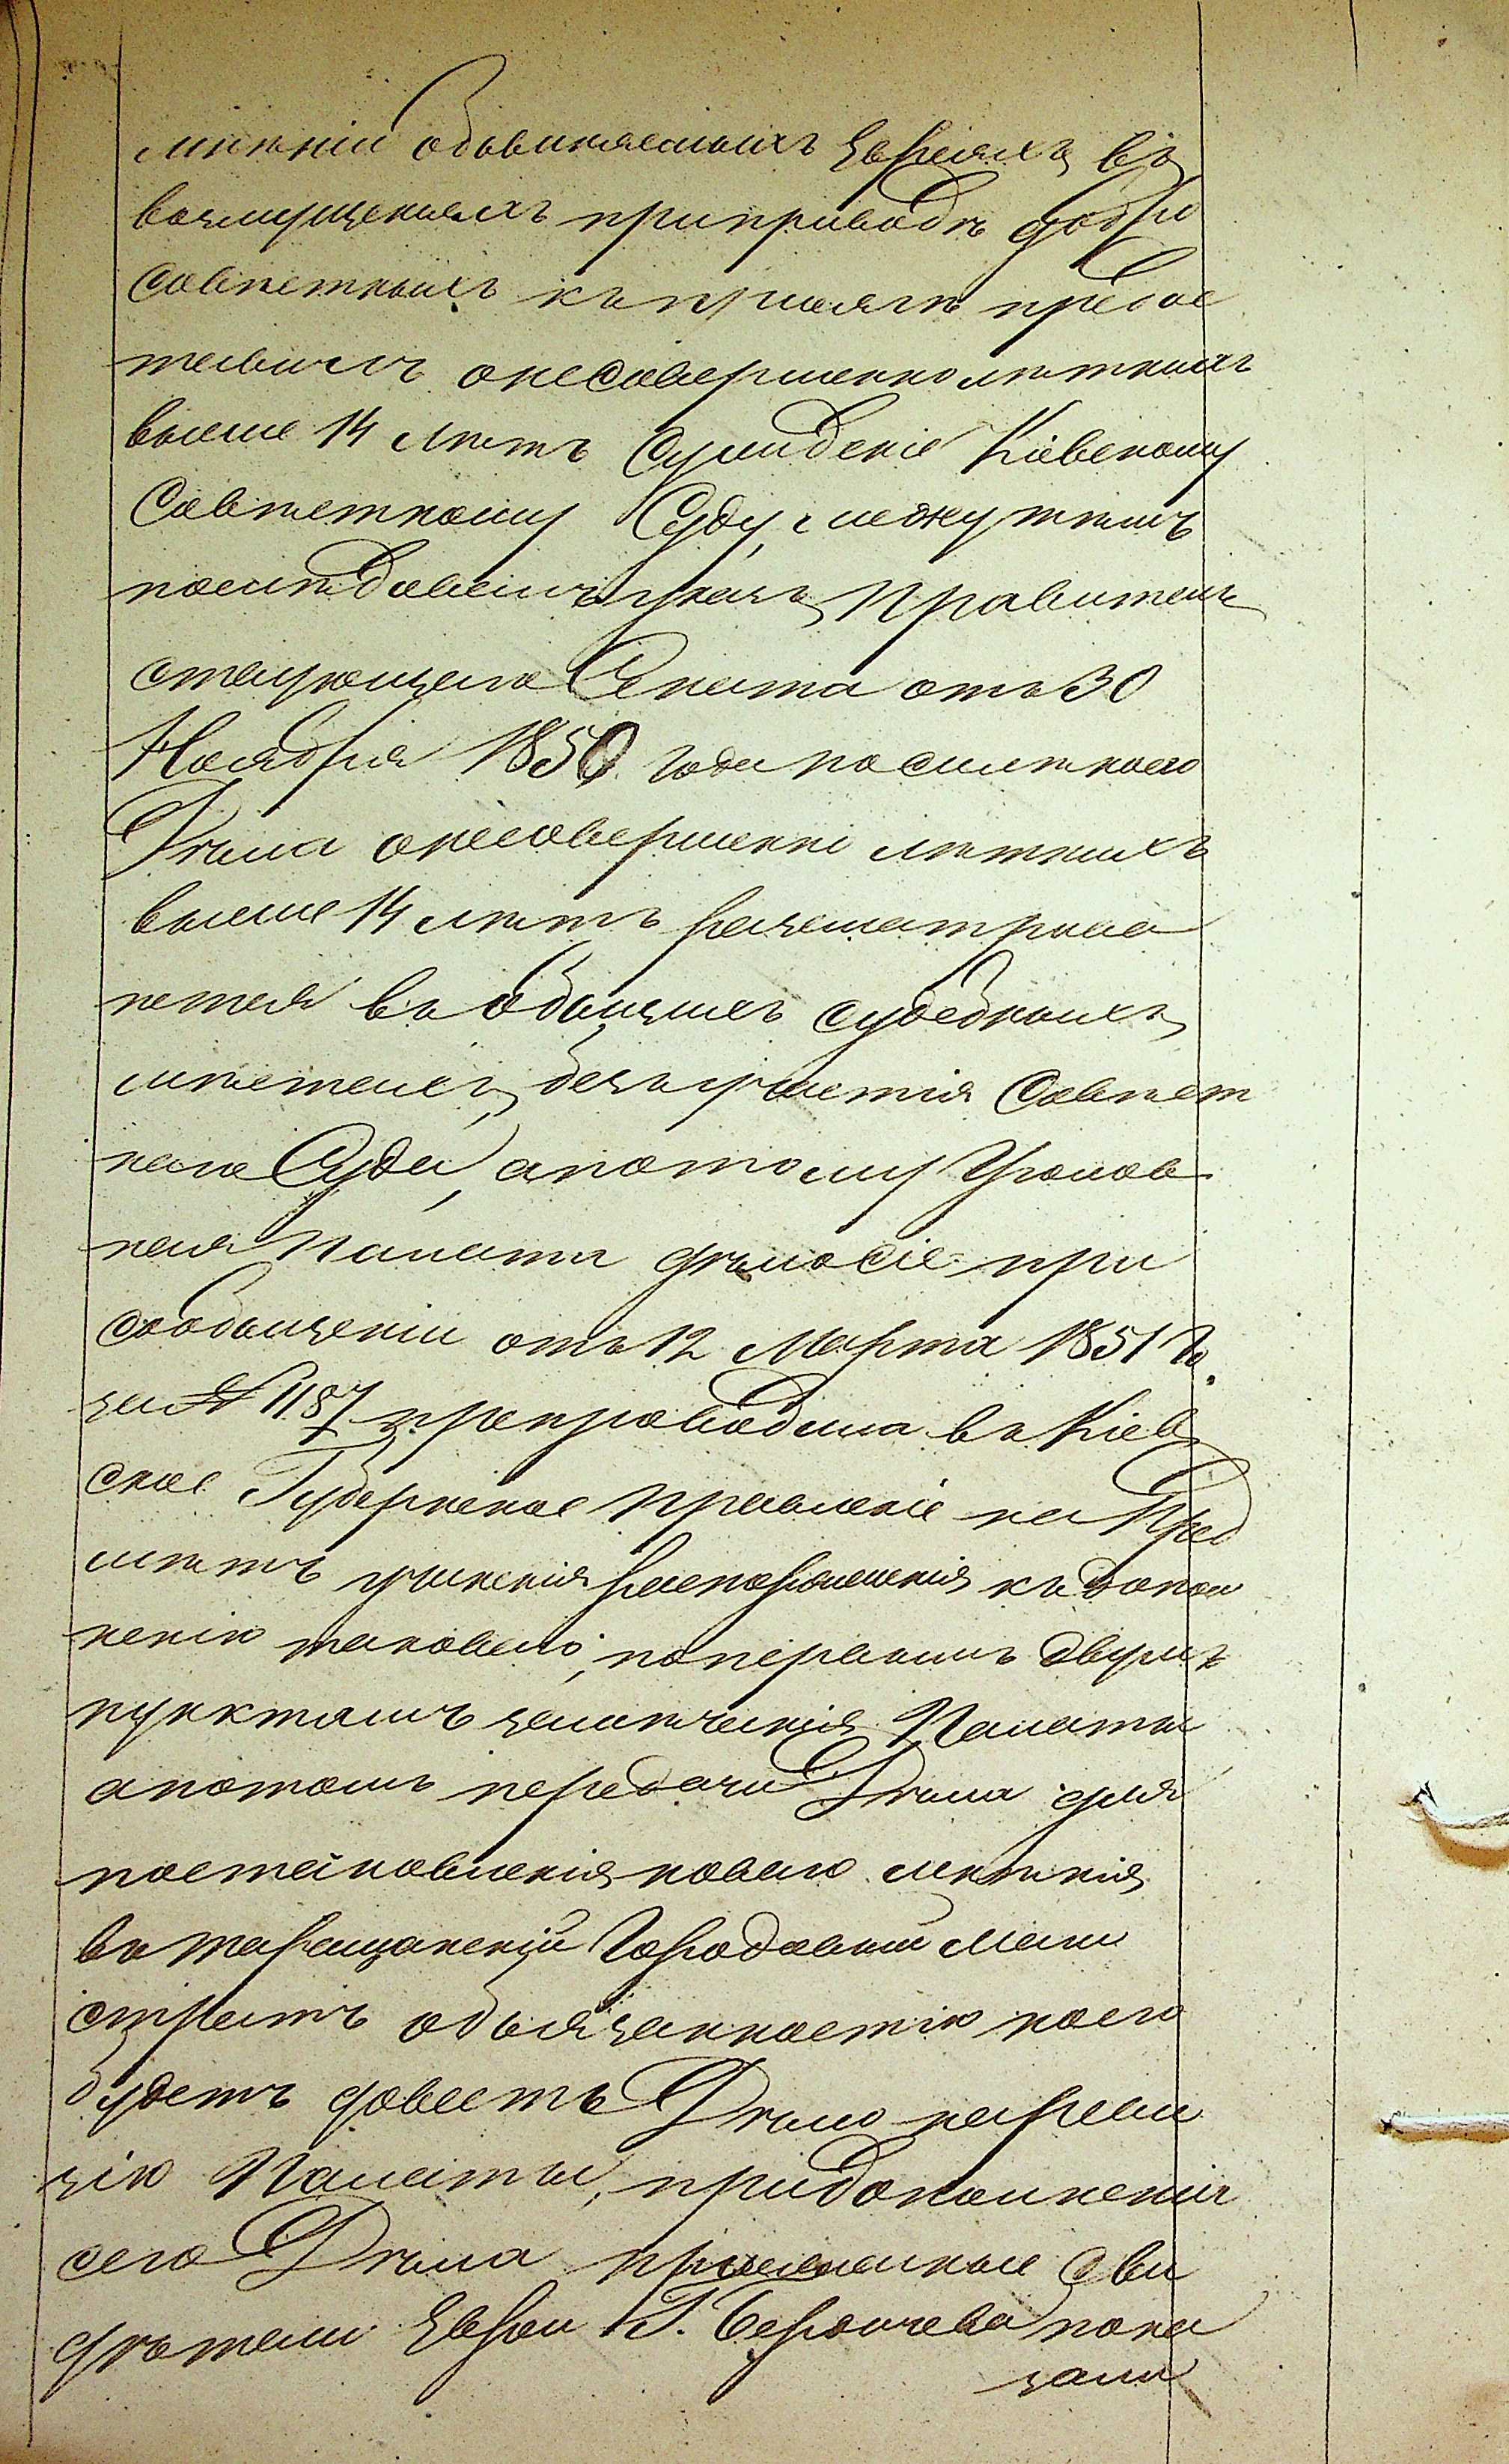 мнѣніи обвиняемыхъ Евреяхъ въ
возмущеніяхъ при приводѣ добро
совѣстныхъ къ присягѣ предос
тавилъ о несовершеннолѣтнихъ
выше 14 лѣтъ сужденіе Кіевскому
Совѣстному Суду, между тѣмъ
послѣдовалъ указъ Правитель
ствующаго Сената отъ 30
Ноября 1850 года по силѣ коего
Дѣла о несовершенно лѣтнихъ
выше 14 лѣтъ разсматрива
ются въ общихъ судебныхъ
мѣстахъ, безъ участія Совѣст
наго Суда, а потому Уголов
ная Палата дѣло сіе при
сообщеніи отъ 12 Марта 1851 го.
за № 1187 препроводила въ Кіев
ское Губернское Правленіе на Пред
мѣтъ учиненія распоряженія къ допол
ненію таковаго, по первымъ двумъ
пунктамъ замѣчанія Палаты
а потомъ передачи Дѣла для
постановленія новаго мнѣнія
въ Таращанскій Городовый Маги
стратъ обязанностію коего
будетъ довесть Дѣло на реви
зію Палаты, при дополненіи
сего Дѣла присяжные сви
дѣтели Евреи Г. Бердичева пока
зали